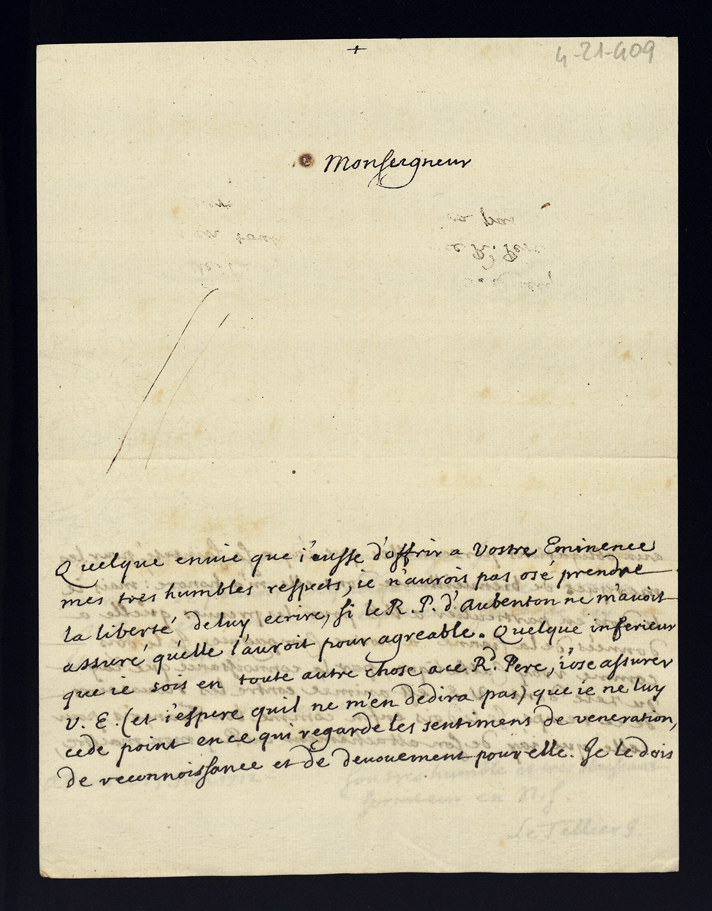 4-21-409
Monseigneur
Quelque envie que i'eusse d'offrir a Vostre Eminence
mes tres humbles respects, ie n'aurois pas osé prendre
la liberté de luy ecrire, si le R. P. d'Aubenton ne m'avoit
assuré qu'elle l'auroit pour agreable. Quelque inferieur
que ie sois en toute autre chose a ce Rd. Pere, i'ose assurer
V. E. (et i'espere qu'il ne m'en dedira pas) que ie ne luy
cede point en ce qui regarde les sentimens de veneration,
de reconnoissance et de devouement pour elle. Je le dois
serviteur en N. S.
Le Tellier J.